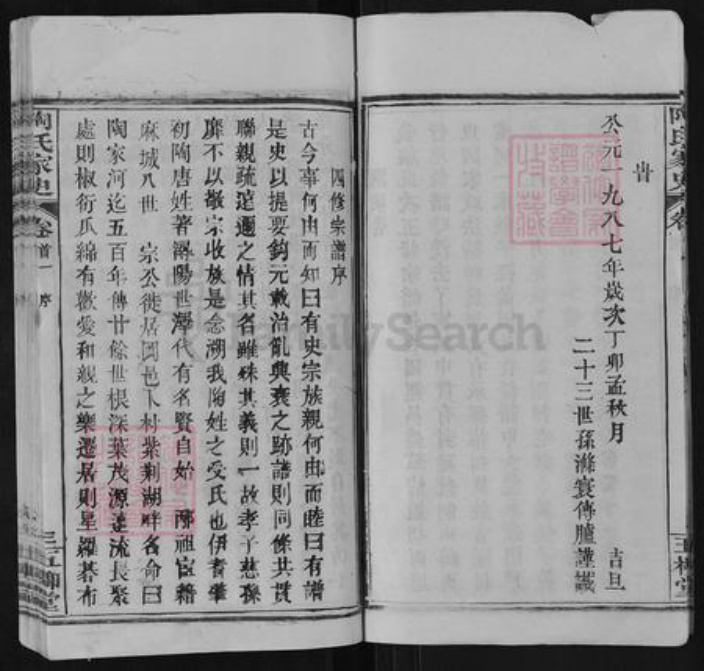 公元一九八七年歲次丁卯孟秋月 吉旦
二十三世孫滌寰傳臚謹識
陶氏家史
卷首一 序
五柳堂
四修宗譜序
古今事何由而知曰有史宗族親何由而睦曰有譜
是史以提要鈎元載治亂興衰之跡譜則同條共貫
聯親疏遠邇之情其名雖殊其義則一故孝子慈孫
靡不以敬宗收族是念溯我陶姓之受氏也伊耆肇
初陶唐姓著潯陽世澤代有名賢自始 祖宦籍
麻城八世 宗公徙居岡邑卜村紫荆湖畔名命曰
陶家河迄五百年傳廿餘世根深葉茂源遠流長聚
處則椒衍瓜綿有歡愛和親之樂遷居則星羅碁布
FamilySearch